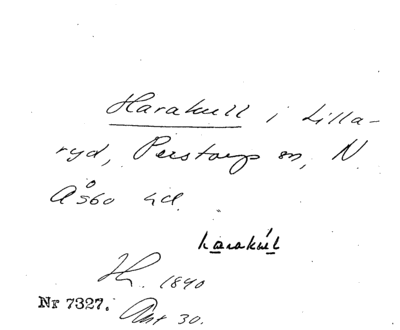 Harakull i Lilla-
ryd, Perstorp sn, N.
Åsbo hd.
harakúl
Hr. 1840
Nr 7327. Akt 30.